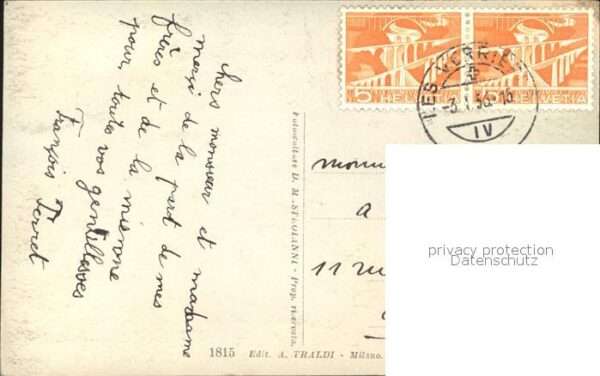 chers monsieur et madame
merci de la part de mes
frères et de la mienne
pour toutes vos gentillesses
François Perret
5 HELVETIA 5 HELVETIA
LES VERRIE
-3. 56-16
IV
Fotocelere
Prop. riservata.
a
11
1815 Edit. A. TRALDI - Milano.
privacy protection
Datenschutz